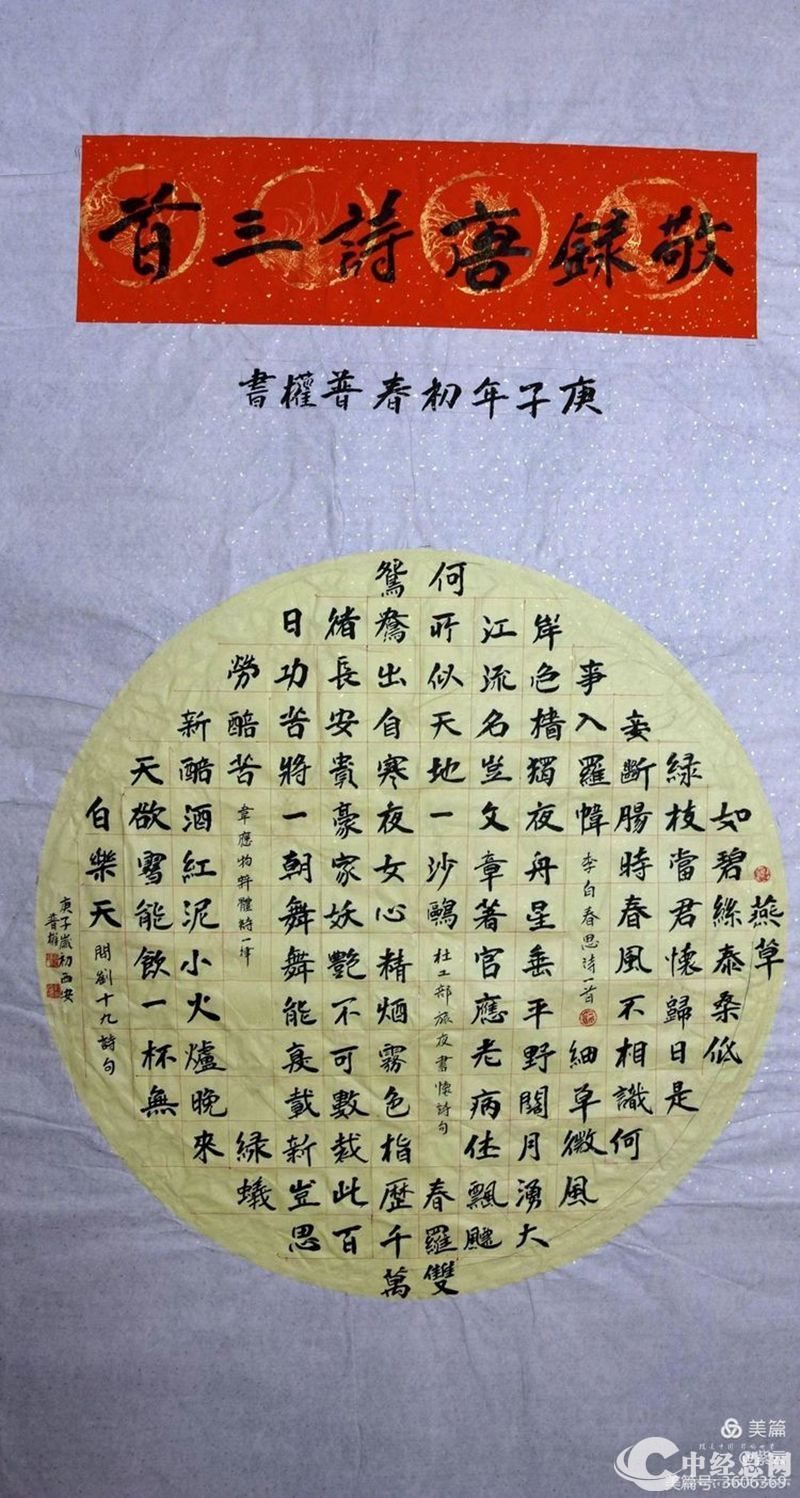 敬録唐詩三首
庚子年初春普權書
燕草
如碧絲泰桑低
緑枝當君懷歸日是
妾斷腸時春風不相識何
事入羅幃 李白春思詩一首 細草微風
岸色檣獨夜舟星垂平野闊月湧大
江流名豈文章著官應老病住飄飄
何所似天地一沙鷗 杜工部旅夜書懷詩句 春羅雙
鴛鴦出自寒夜女心精烟霧色指歷千萬
緒長安貴豪家妖艷不可數裁此百
日功苦將一朝舞舞能哀載新豈思
勞醅苦 韋應物雜體詩一律 緑蟻
新醅酒紅泥小火爐晚來
天欲雪能飲一杯無
白樂天 問劉十九詩句
庚子歲初西安
普權
美篇
中经总网
美篇号:3606369